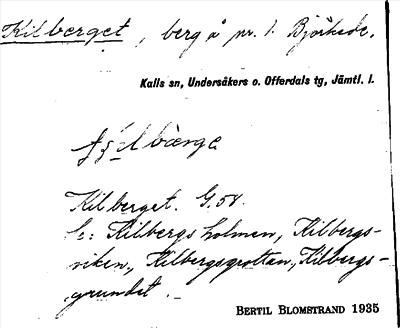 Kilberget, berg å nr. 1. Björkede.
Kalls sn, Undersåkers o. Offerdals tg, Jämtl. l.
Kilberget. G.58.
S: Kilbergsholmen, Kilbergs-
viken, Kilbergsgrottan, Kilbergs-
grundet.
BERTIL BLOMSTRAND 1935